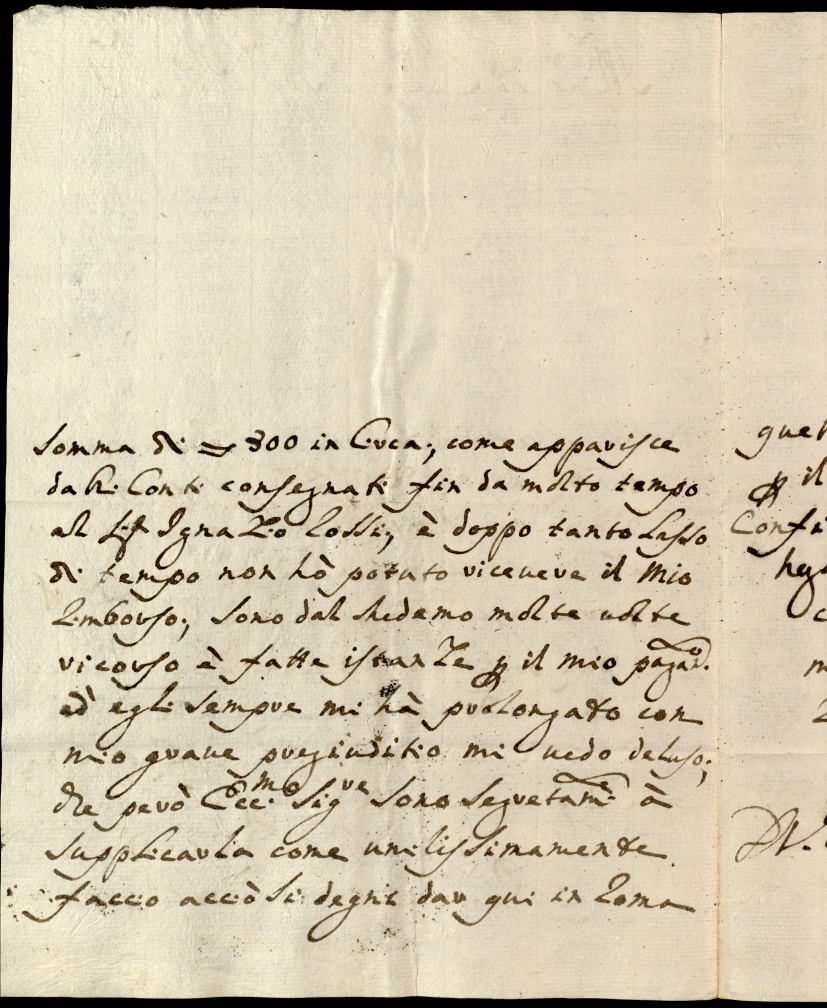 somma di 300 in Circa, come apparisce
dalli Conti consegnati fin da molto tempo
al Sig.r Ignazio Rossi, è doppo tanto Lasso
di tempo non hò potuto ricevere il mio
Rimborso; sono dal medemo molte uolte
ricorso è fatte istanze p il mio pagam.to
ed egli sempre mi hà prolongato con
mio graue pregiuditio mi uedo deluso;
che però Ecc.mo Sig.re sono segretam.te à
supplicarla come umilissimamente
faccio acciò si degni dar qui in Roma
quel
p il
Confi